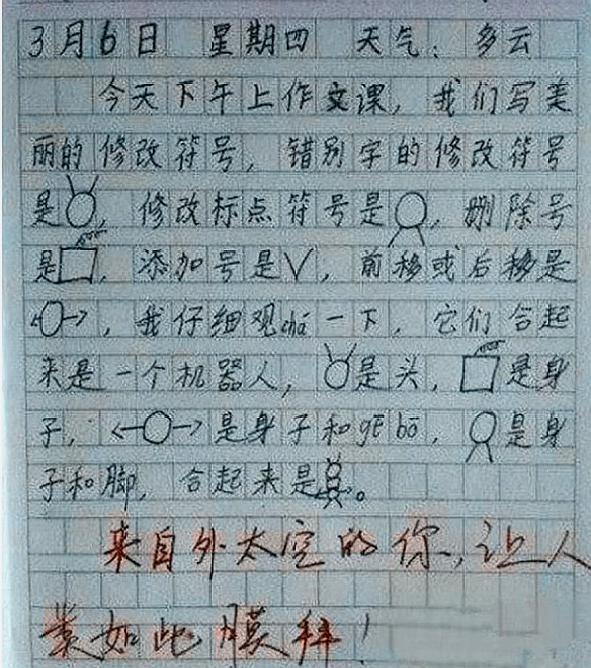 3月6日 星期四 天气：多云
今天下午上作文课，我们写美
丽的修改符号，错别字的修改符号
是，修改标点符号是，删除号
是，添加号是√，前移或后移是
，我仔细观chá一下，它们合起
来是一个机器人，是头，是身
子，是身子和gē bō，是身
子和脚，合起来是。
来自外太空的你，让人
如此膜拜！